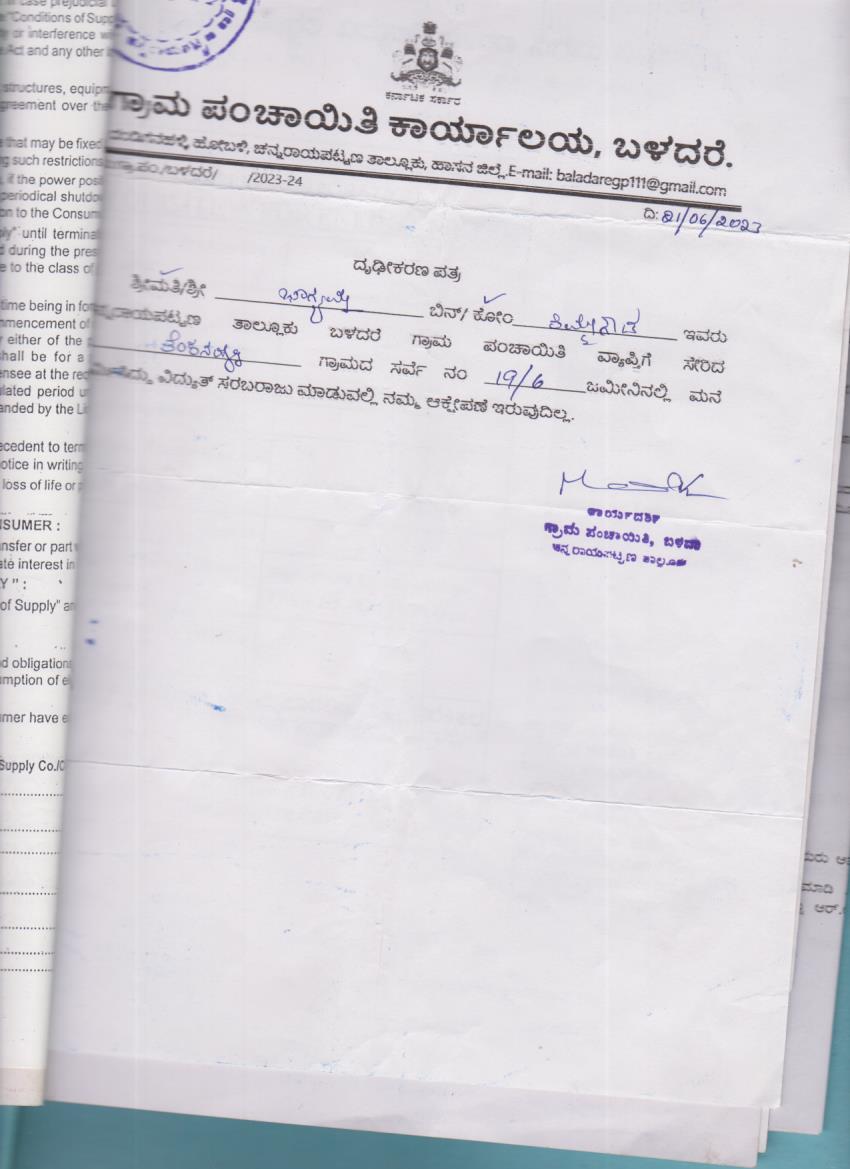 ಕರ್ನಾಟಕ ಸರ್ಕಾರ
ಗ್ರಾಮ ಪಂಚಾಯಿತಿ ಕಾರ್ಯಾಲಯ, ಬಳದರೆ.
ಹೋಬಳಿ, ಚನ್ನರಾಯಪಟ್ಟಣ ತಾಲ್ಲೂಕು, ಹಾಸನ ಜಿಲ್ಲೆ.E-mail: baladaregp111@gmail.com
ಗ್ರಾ.ಪಂ./ಬಳದರೆ/ /2023-24
ದಿ: 21/06/2023
ದೃಢೀಕರಣ ಪತ್ರ
ಶ್ರೀಮತಿ/ಶ್ರೀ ಭಾಗ್ಯಮ್ಮ ಬಿನ್/ ಕೋಂ ಇವರು
ತಾಲ್ಲೂಕು ಬಳದರೆ ಗ್ರಾಮ ಪಂಚಾಯಿತಿ ವ್ಯಾಪ್ತಿಗೆ ಸೇರಿದ
ಗ್ರಾಮದ ಸರ್ವೆ ನಂ 19/6 ಜಮೀನಿನಲ್ಲಿ ಮನೆ
ವಿದ್ಯುತ್ ಸರಬರಾಜು ಮಾಡುವಲ್ಲಿ ನಮ್ಮ ಆಕ್ಷೇಪಣೆ ಇರುವುದಿಲ್ಲ.
ಕಾರ್ಯದರ್ಶಿ
ಗ್ರಾಮ ಪಂಚಾಯಿತಿ, ಬಳದರೆ
ಚನ್ನರಾಯಪಟ್ಟಣ ತಾಲ್ಲೂಕು
"Conditions of Supp
or interference
Act and any other
structures, equipm
greement over the
that may be fixed
such restrictions
if the power posi
periodical shutdo
on to the Consum
until termina
during the pres
e to the class of
time being in for
mmencement of
either of the
shall be for a
ensee at the req
ulated period
anded by the Li
ecedent to term
otice in writing
loss of life or
NSUMER :
nsfer or part
ate interest in
Y" :
of Supply" an
d obligations
mption of e
mer have e
Supply Co./C